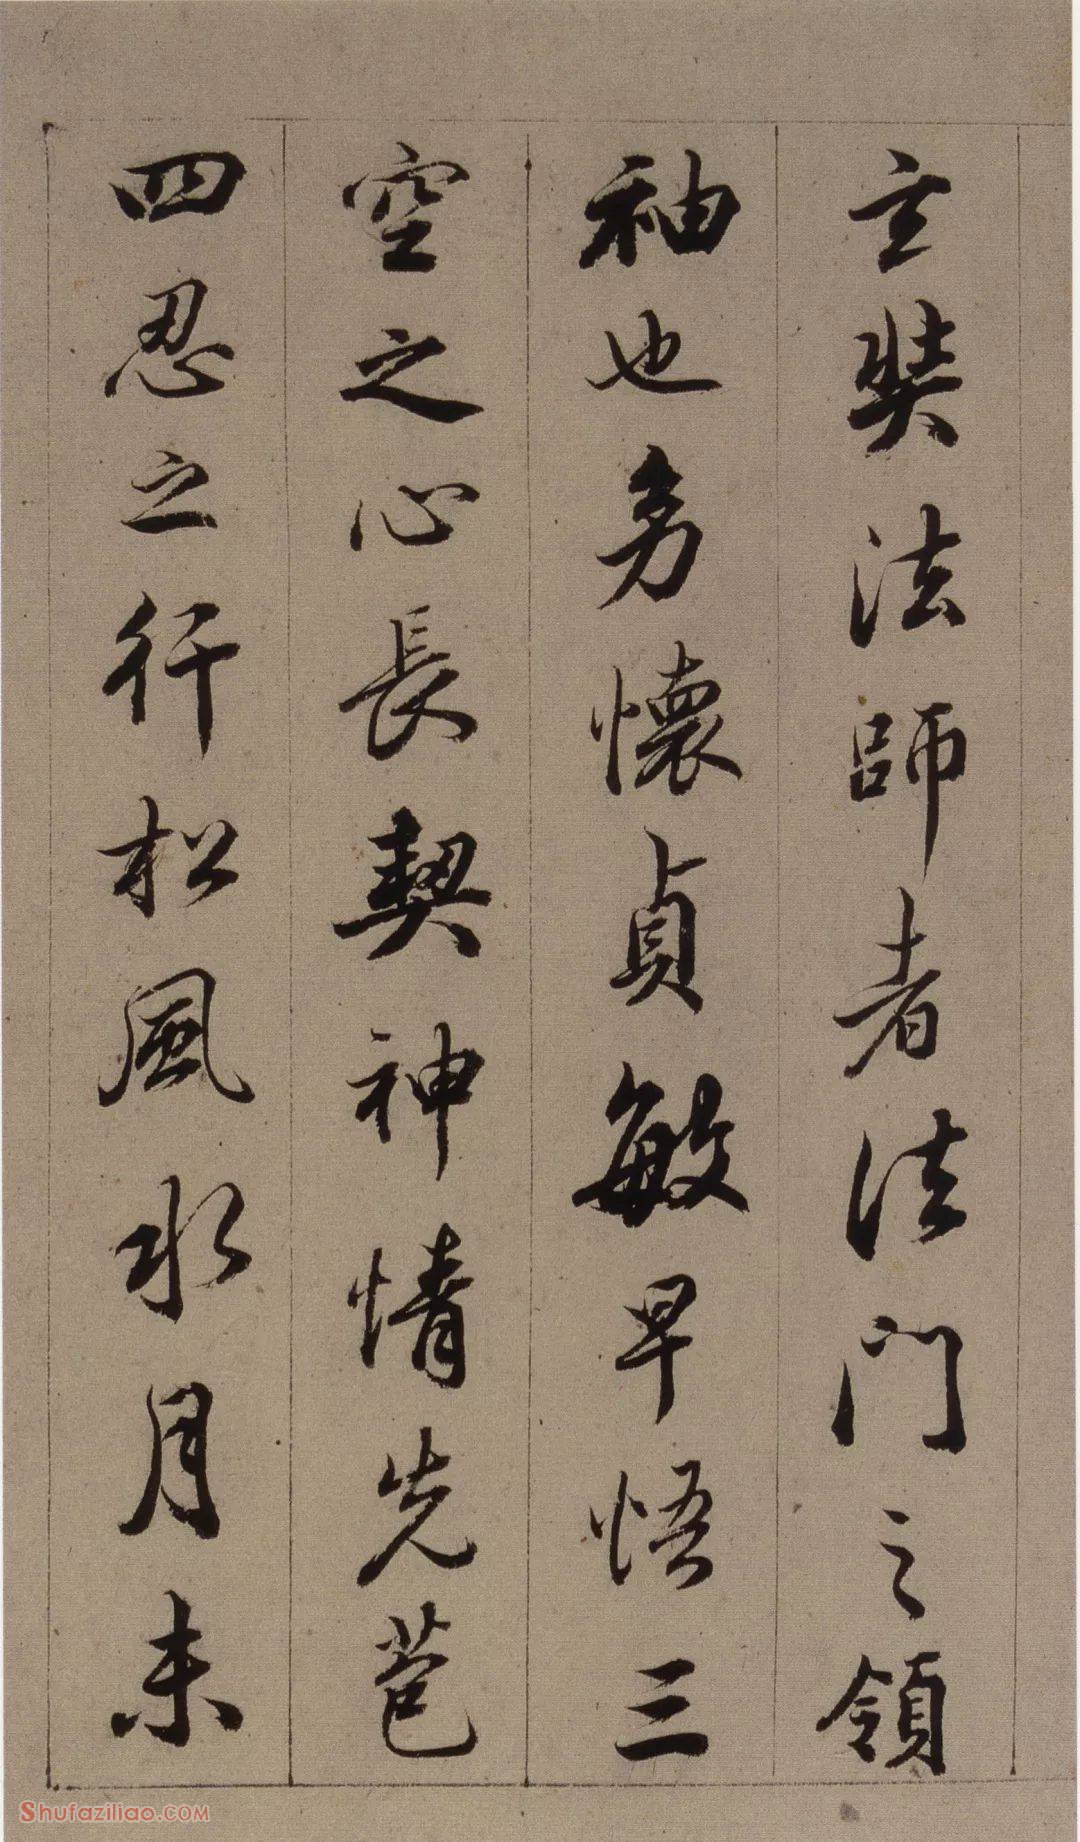 玄奘法師者法門之領
袖也多懷貞敏早悟三
空之心長契神情先苞
四忍之行松風水月未
Shufaziliao.COM